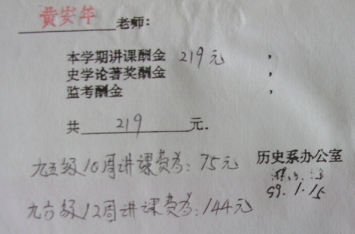 黄安年老师:
本学期讲课酬金 219元 ,
史学论著奖酬金 ,
监考酬金 ,
共 219 元.
九五级10周讲课费为: 75元
历史系办公室
99.1.15
九六级12周讲课费为: 144元